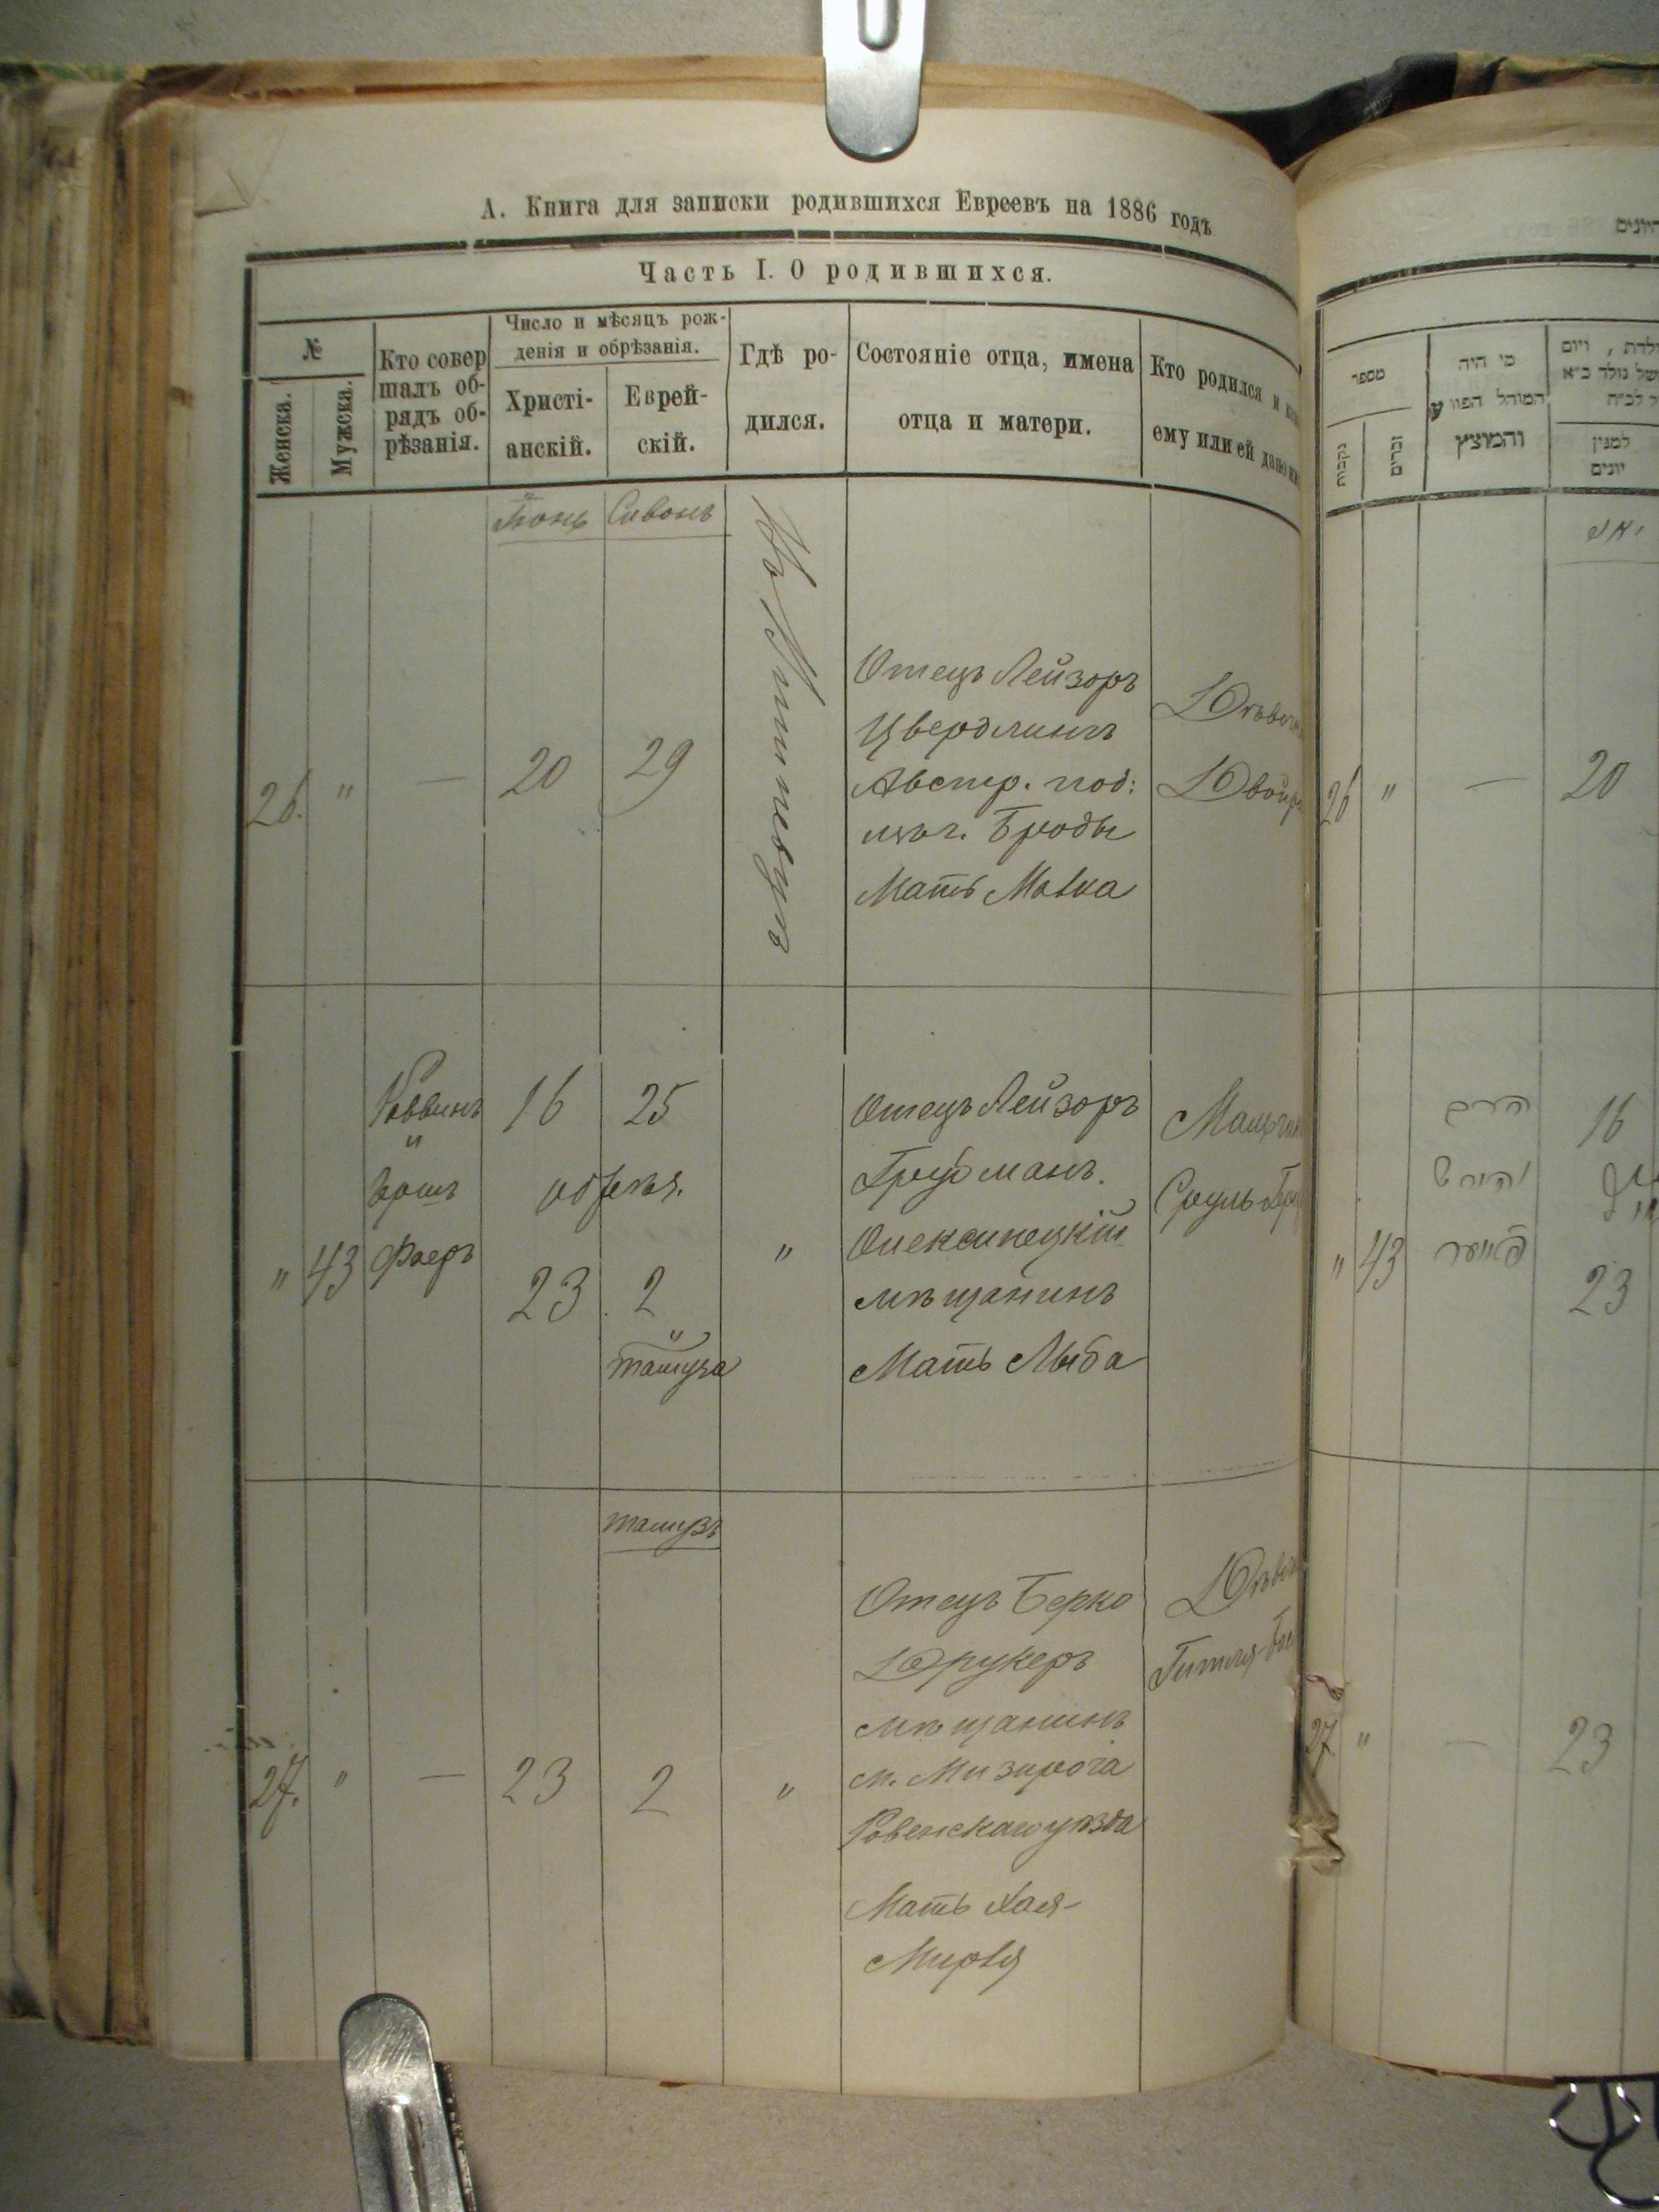 А. Книга для записки родившихся Евреевъ на 1886 годъ
Часть I. О родившихся.
№
Женска.
Мужска.
Кто совер
шалъ об-
рядъ об-
рѣзанія.
Число и мѣсяцъ рож-
денія и обрѣзанія.
Христі-
анскій.
Еврей-
скій.
Гдѣ ро-
дился.
Состояніе отца, имена
отца и матери.
Кто родился и
ему или ей дано
Іюнь
Сивонъ
26. " — 20 29
Отецъ Лейзоръ
Цвердлингъ
Австр. под:
Броды
Мать Малка
Двойра
Раввинъ
"
Гершъ
Фаеръ
" 43
16 25
обрѣз.
23 2
"
тамуза
"
Отецъ Лейзоръ
Груб манъ.
Олексинецкій
мѣщанинъ
Мать Лыба
Сруль
тамузъ
27. " — 23 2 "
Отецъ Берко
Друкеръ
мѣщанинъ
м. Мизироча
Ровенскаго уѣзда
Мать Хая-
Мирля
Гитля
מספר
נקבות
זכרים
מי היה
המוהל הפורע
והמוצץ
למנין
יונים
26 " — 20
הרב
והירש
פייער
" 43
16
23
27. " — 23